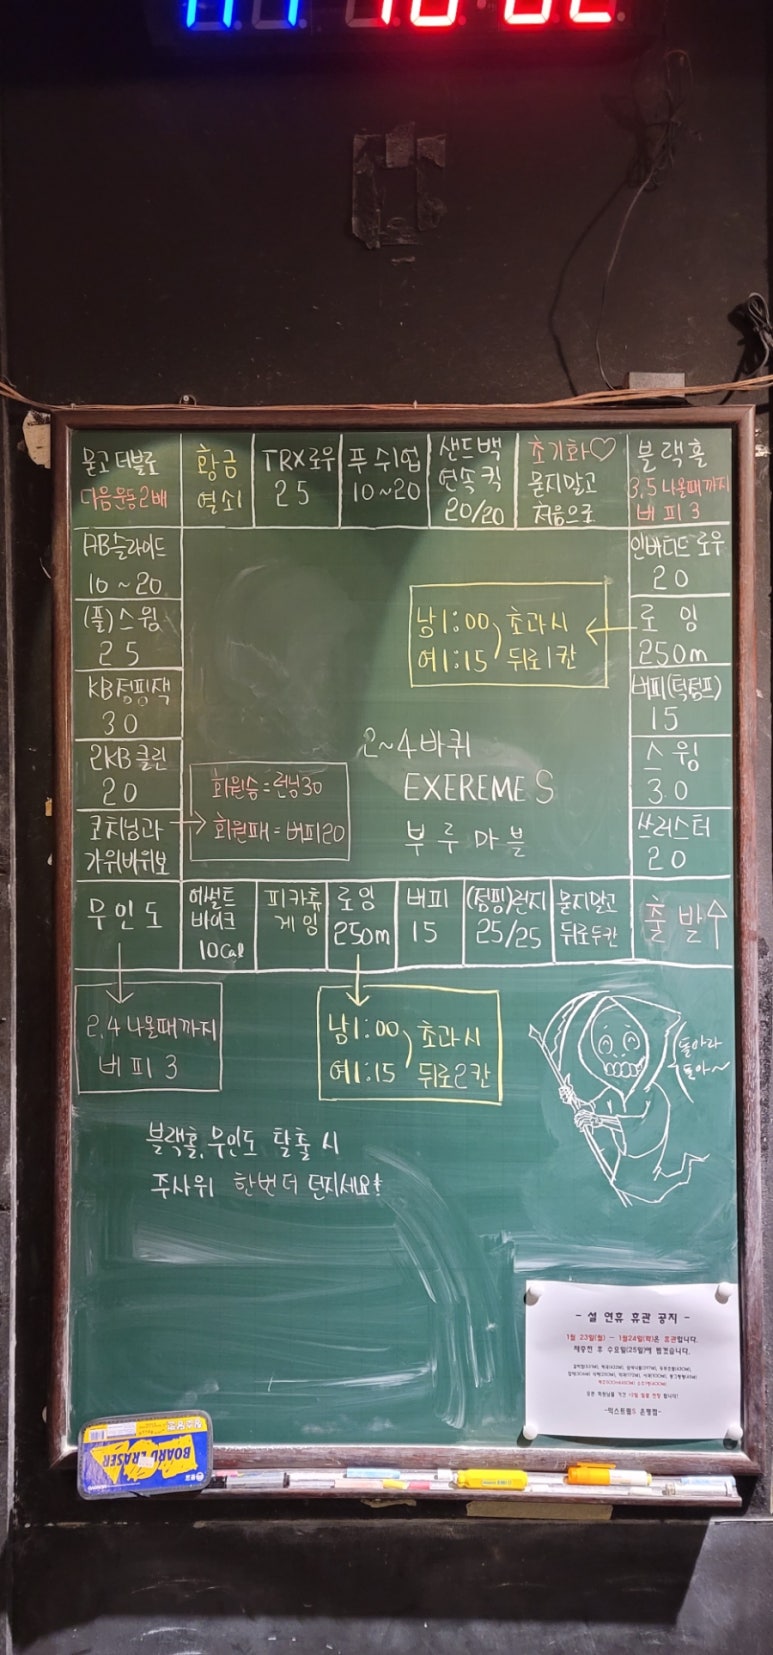 묻고 더블로
다음운동2배
황금
열쇠
TRX로우
25
푸쉬업
10~20
샌드백
연속킥
20/20
초기화♡
묻지말고
처음으로
블랙홀
3,5 나올때까지
버피3
AB슬라이드
10~20
(풀)스윙
25
KB점핑잭
30
2KB클린
20
코치님과
가위바위보
회원승=런닝30
회원패=버피20
남1:00 초과시
여1:15 뒤로1칸
2~4바퀴
EXEREME S
부루마블
인버티드 로우
20
로잉
250m
버피(턱점프)
15
스윙
30
쓰러스터
20
무인도
어썰트
바이크
10cal
피카츄
게임
로잉
250m
버피
15
(점핑)런지
25/25
묻지말고
뒤로두칸
출발↑
2,4 나올때까지
버피3
남1:00 초과시
여1:15 뒤로2칸
돌아라
돌아~
블랙홀, 무인도 탈출 시
주사위 한번 더 던지세요!
- 설 연휴 휴관 공지 -
1월 23일(월) ~ 1월24일(화)은 휴관입니다.
재충전 후 수요일(25일)에 뵙겠습니다.
-익스트림S 은평점-
BOARD ERASER